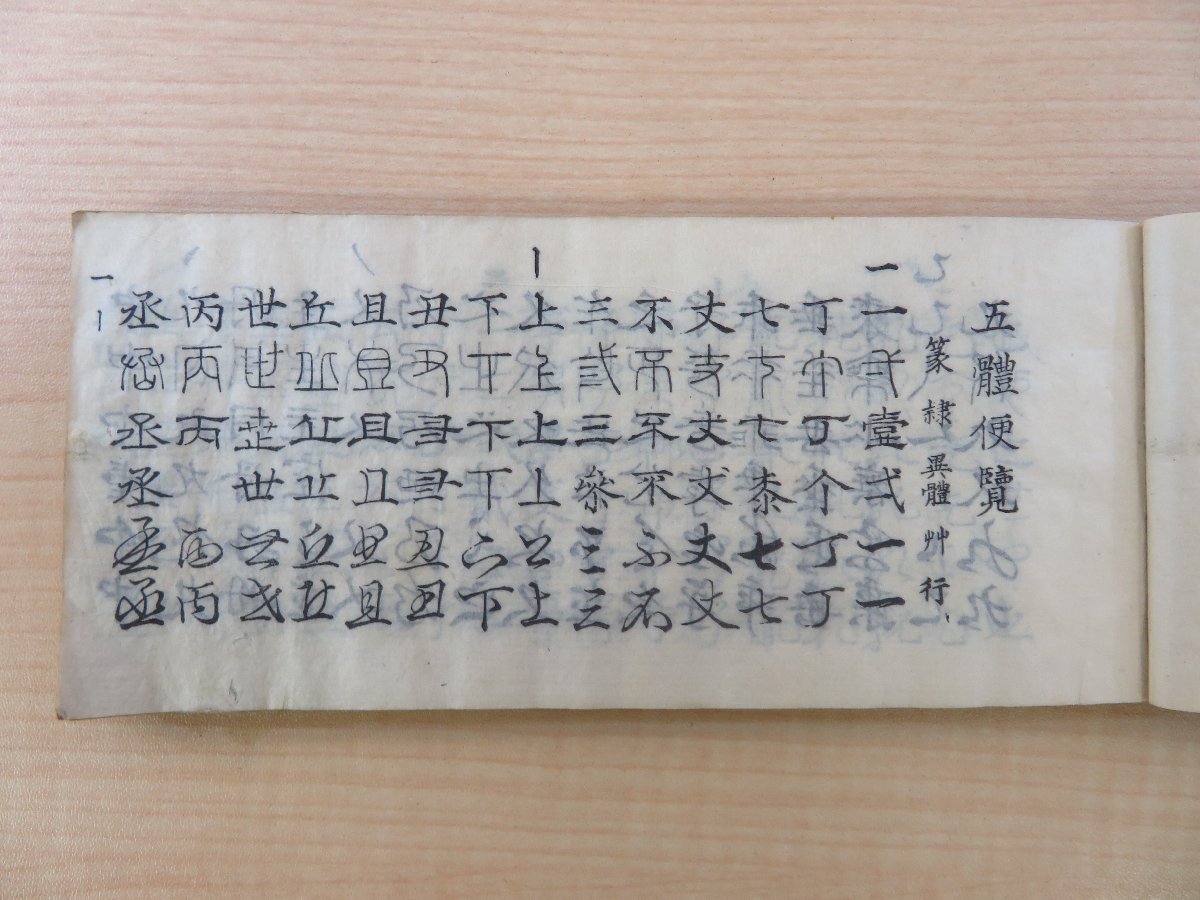 五體便覽
篆 隷 異體 艸 行
一
一 弌 壹 弌 一 一
丁 丁 丁 个 丁 丁
七 七 七 桼 七 七
丈 丈 丈 丈 丈 丈
不 不 不 不 不 不
三 弎 三 叅 三 三
丨
上 上 上 上 上 上
下 下 下 丅 下 下
丑 丑 丑 丑 丑 丑
且 且 且 且 且
丘 丘 丘 丘 丘 丘
世 世 世 世 世 世
丙 丙 丙 丙 丙
丞 丞 丞 丞 丞 丞
一
丨